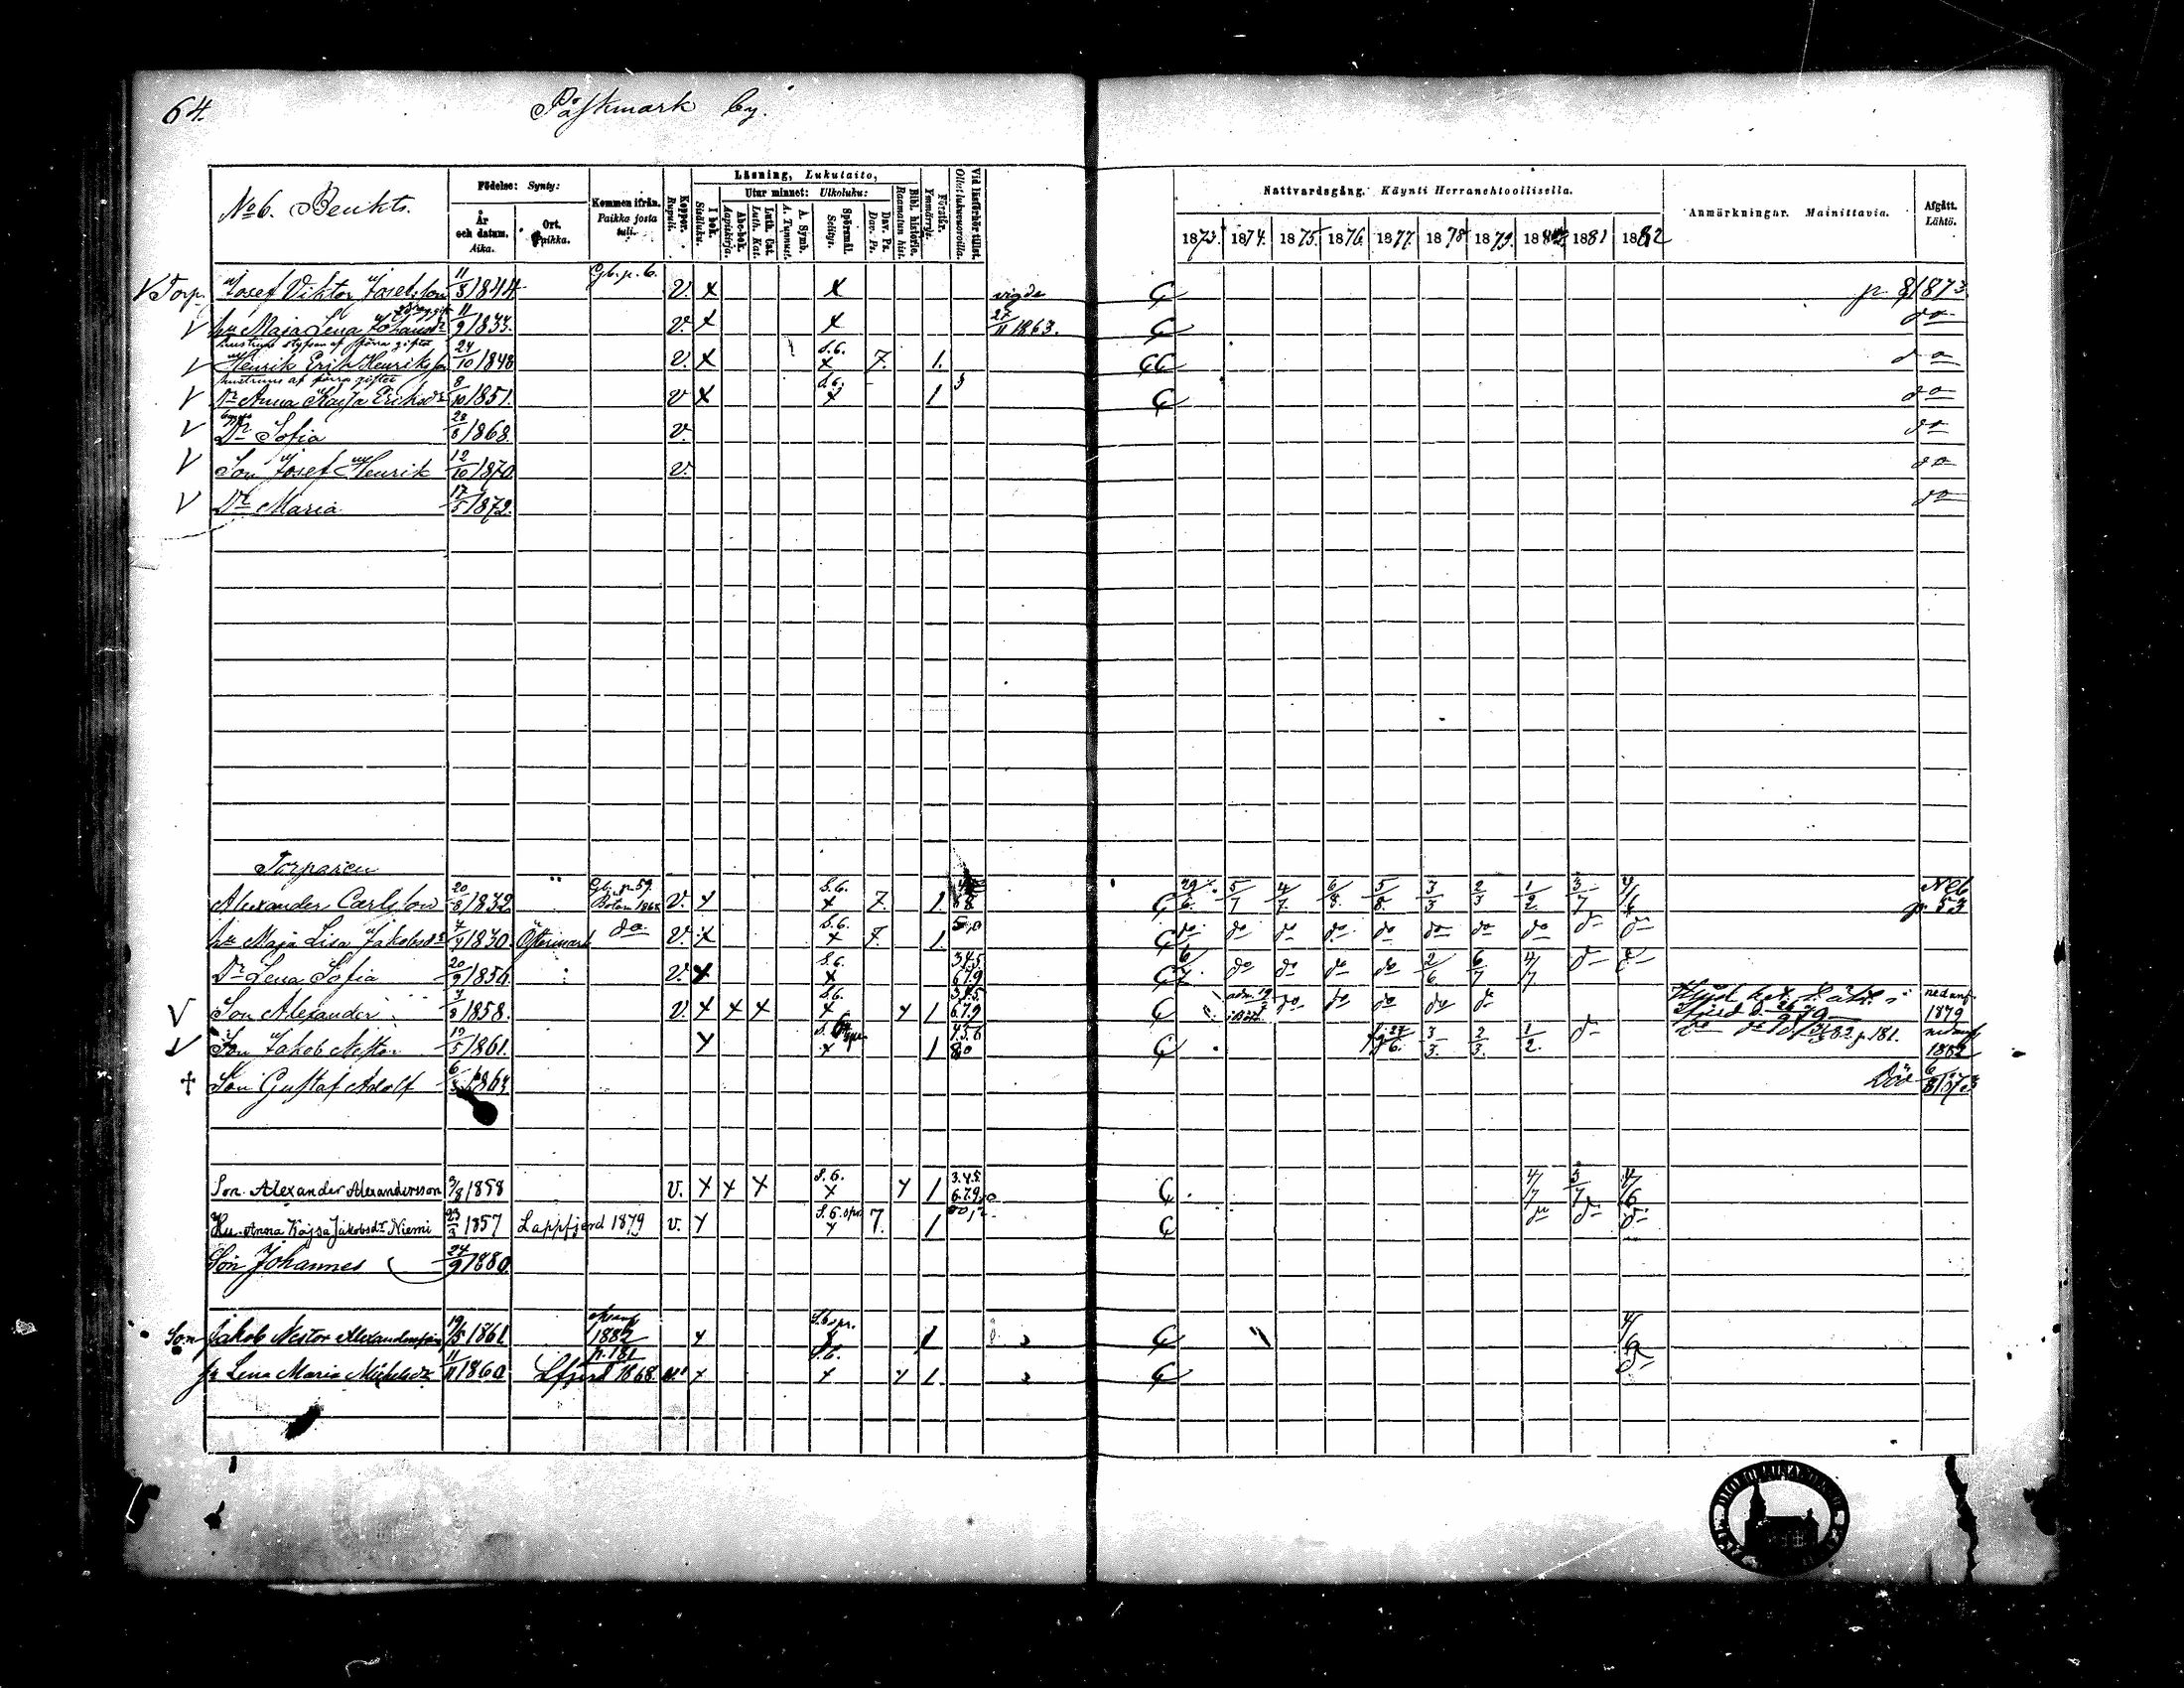 64.
Påskmark by.
No 6. Benkts.
Födelse: Synty:
År och datum. Aika.
Ort. Paikka.
Kommen ifrån. Paikka josta tuli.
Koppor. Rupuli.
Läsning, Lukutaito,
I bok. Sisäluku.
Utur minnet: Ulkoluku:
Abc-bok. Aapiskirja.
Luth. Cat. Luth. Kat.
A. Symb. A. Tunnust.
Spörsmål. Selitys.
Dav. Ps. Dav. Ps.
Bibl. historie. Raamatun hist.
Förstår. Ymmärrys.
Vid läsförhör tillst. Ollut lukuvuoroilla.
Nattvardsgång. Käynti Herranehtoollisella.
1873. 1874. 1875. 1876. 1877. 1878 1879. 1881 1882
Anmärkningar. Mainittavia.
Afgått. Lähtö.
V Torp. Josef Viktor Josefsson 11/3 1844 Gb. p. 6. V. x x vigde p 8/1873
V hu Maja Lena Johansdr 11/9 1833. V. x x 27/11 1863. do
V Henrik Erik Henriksson 24/10 1848 V. x S.6. x 7. 1. do
hustruns af förra giftet
V Dr Anna Kajsa Eriksdr 8/10 1851. V x S.6. x 1 do
V Dr Sofia 28/8 1868. V. do
V Son Josef Henrik 12/10 1870 V. do
V Dr Maria 17/5 1872. do
Torparen
Alexander Carlsson 20/8 1832 Gb. p. 59. Botom V. x S.6. x 7. 1. 5/7 4/7 6/8 5/8. 3/3 2/3 1/2. 3/7 4/6 p. 53
hu Maja Lisa Jakobsdr 1830 Östermark do. V. x S.6. x 7. 1. do do do do do do do do do do
Dr Lena Sofia 20/9 1856. V. x S.6. x 3.4.5. 6.7.9 6/7. do do do do 2/6 6/7 4/7 do do
V Son Alexander 3/8 1858. V. x x x S.6. x x 1 3.4.5. 6.7.9 do do do do do nedanf. 1879
V Son Jakob Nestor 19/5 1861. x x 1 3/3. 2/3. 1/2. do p. 181. nedanf 1882
+ Son Gustaf Adolf 1863. Död 6/8 1873
Son. Alexander Alexandersson 3/8 1858 V. x x x S.6. x x 1 3.4.5. 6.7.9 4/7 3/7 4/6
Hu. Anna Kajsa Jakobsdr Niemi 23/3 1857 Lappfjerd 1879 V. x S.6. x 7. 1 do do do
Son Johannes 24/9 1880.
Son Jakob Nestor Alexandersson 19/5 1861 1882 x 1 4/6
p. 181
hu Lena Maria Michelsdr 11/11 1860 Lfjerd 1868. x S.6. x x 1. do